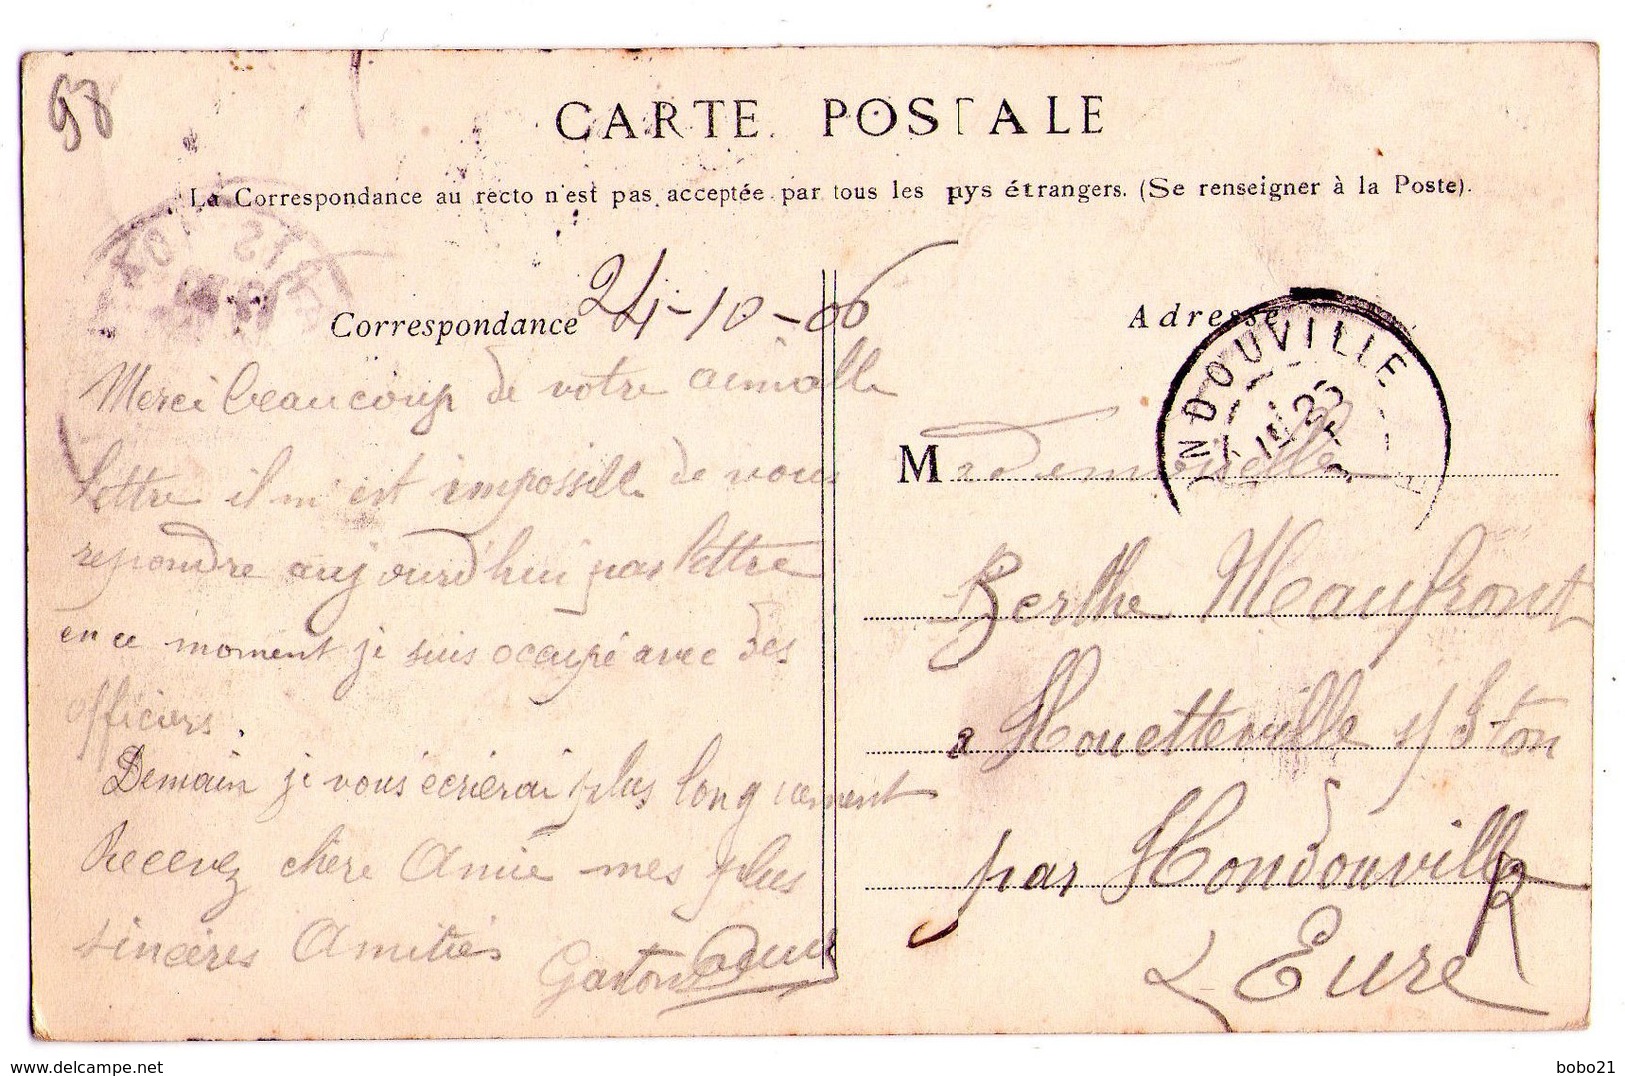 98
CARTE POSTALE
La Correspondance au recto n'est pas acceptée par tous les pys étrangers. (Se renseigner à la Poste).
Correspondance
24-10-06
Merci beaucoup de votre aimable
lettre il m'est impossible de vous
repondre aujourd'hui par lettre
en ce moment je suis occupé avec des
officiers.
Demain je vous écrierai plus longuement
Recevez chère Amie mes plus
sincères Amitiés
Gaston
Adresse
ONDOUVILLE
25
Mademoiselle
Berthe Maufront
a Houetteville s/ Iton
par Hondouville
Eure
bobo21